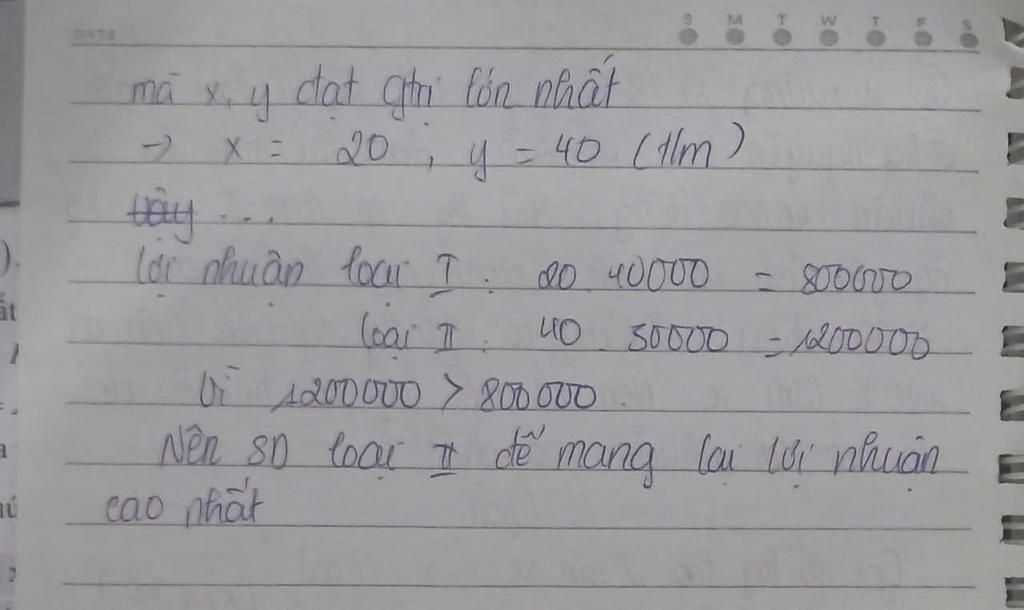 DATE S M T W T F S
mà x, y đạt gtrị lớn nhất
→ x = 20 , y = 40 (t/m)
vậy ...
Lợi nhuận loại I : 20. 40000 = 800000
loại II : 40. 30000 = 1200000
Vì 1200000 > 800000.
Nên SD loại II để mang lại lợi nhuận
cao nhất